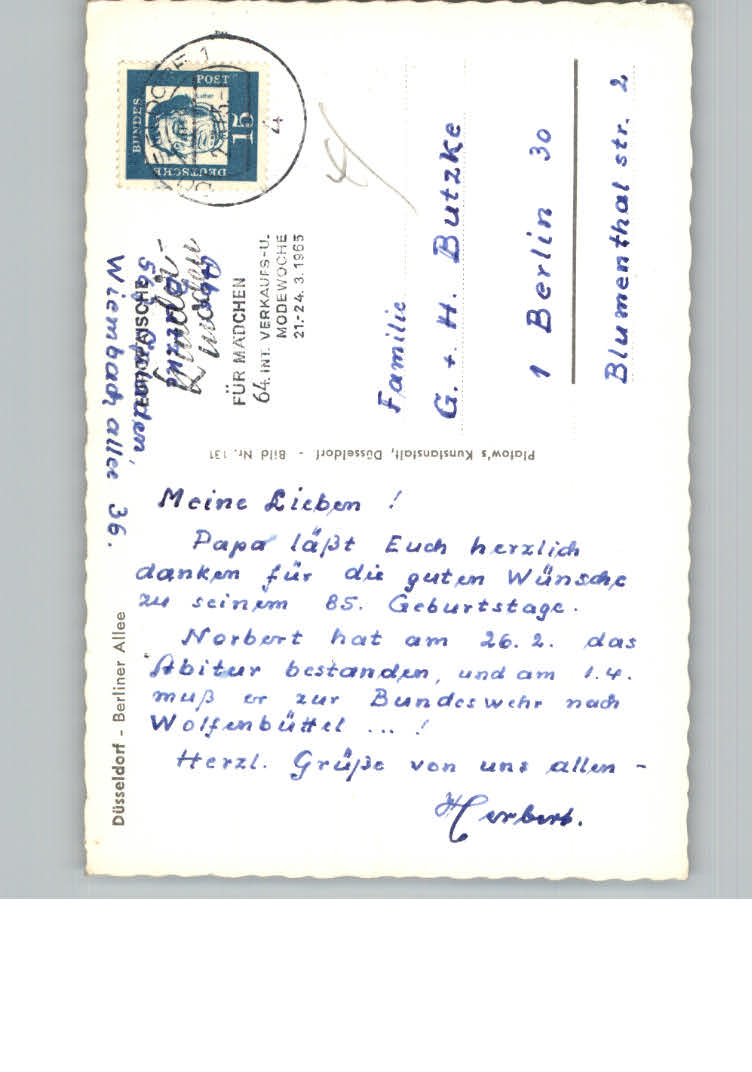 Düsseldorf - Berliner Allee
Meine Lieben !
Papa läßt Euch herzlich
danken für die guten Wünsche
zu seinem 85. Geburtstage.
Norbert hat am 26. 2. das
Abitur bestanden, und am 1.4.
muß er zur Bundeswehr nach
Wolfenbüttel ... !
Herzl. Grüße von uns allen -
Herbert.
Platow's Kunstanstalt, Düsseldorf - Bild Nr. 131
Abs.
Butzke
567 Opladen,
Wiembachallee 36.
DEUTSCHE
BUNDES
POST
15
FÜR MÄDCHEN
64. INT. VERKAUFS-U.
MODEWOCHE
21.-24. 3. 1965
Familie
G. + H. Butzke
1 Berlin 30
Blumenthalstr. 2